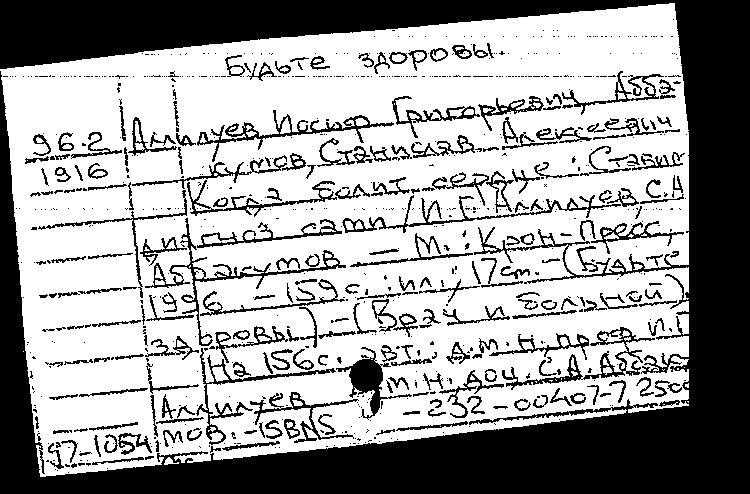 Будьте здоровы.
96.2 Аллилуев, Иосиф Григорьевич, Абба-
1916 кумов, Станислав Алексеевич
Когда болит сердце : Ставим
диагноз сами / И.Г. Аллилуев, С.А
Аббакумов. — М. : Крон-Пресс,
1996. — 159 с. : ил. ; 17 см. — (Будьте
здоровы) — (Врач и больной).
На 156 с. авт.: д.м.н., проф И.Г
Аллилуев м.н. доц. С.А. Аббаку
97-1054 мов. — ISBN5 -232-00407-7, 2500